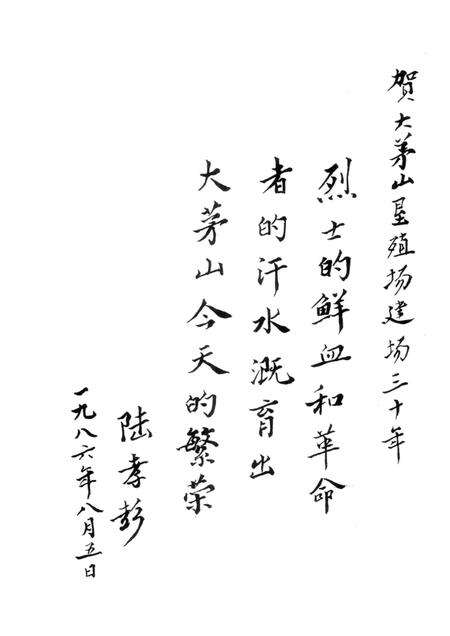 贺大茅山垦殖场建场三十年
烈士的鲜血和革命
者的汗水溉育出
大茅山今天的繁荣
陆孝彭
一九八六年八月五日